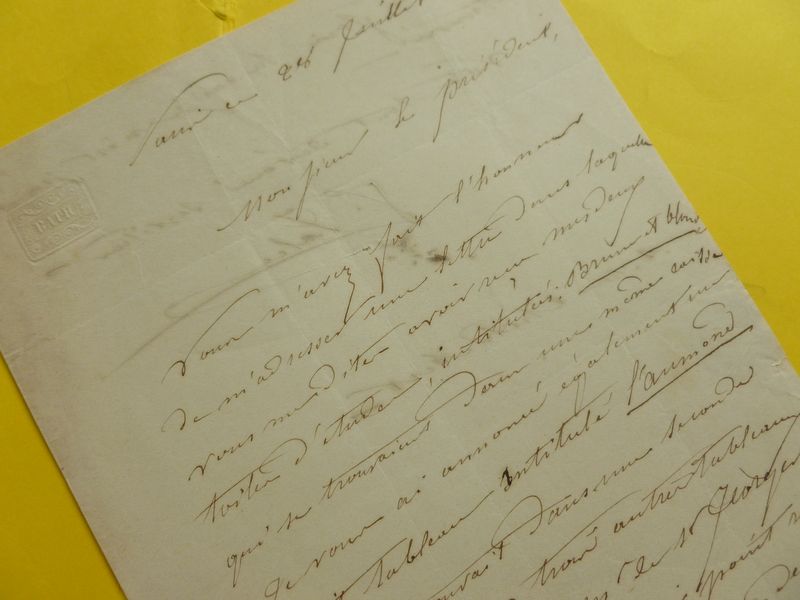 BATH
Paris ce 28 Juillet
Monsieur le président,
Vous m'avez fait l'honneur
de m'adresser une lettre dans laquelle
vous me dites avoir reçu mes deux
toiles d'études, intitulés: Brune et blonde
qui se trouvaient dans une même caisse
Je vous ai annoncé également un
tableau intitulé l'aumone
dans une seconde
trois autres tableaux
de St Georges
point